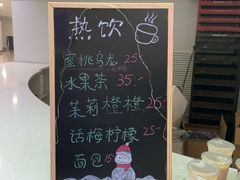 热饮
蜜桃乌龙 25.-
水果茶 35.-
茉莉橙橙 25-
话梅柠檬 25-
面包 15